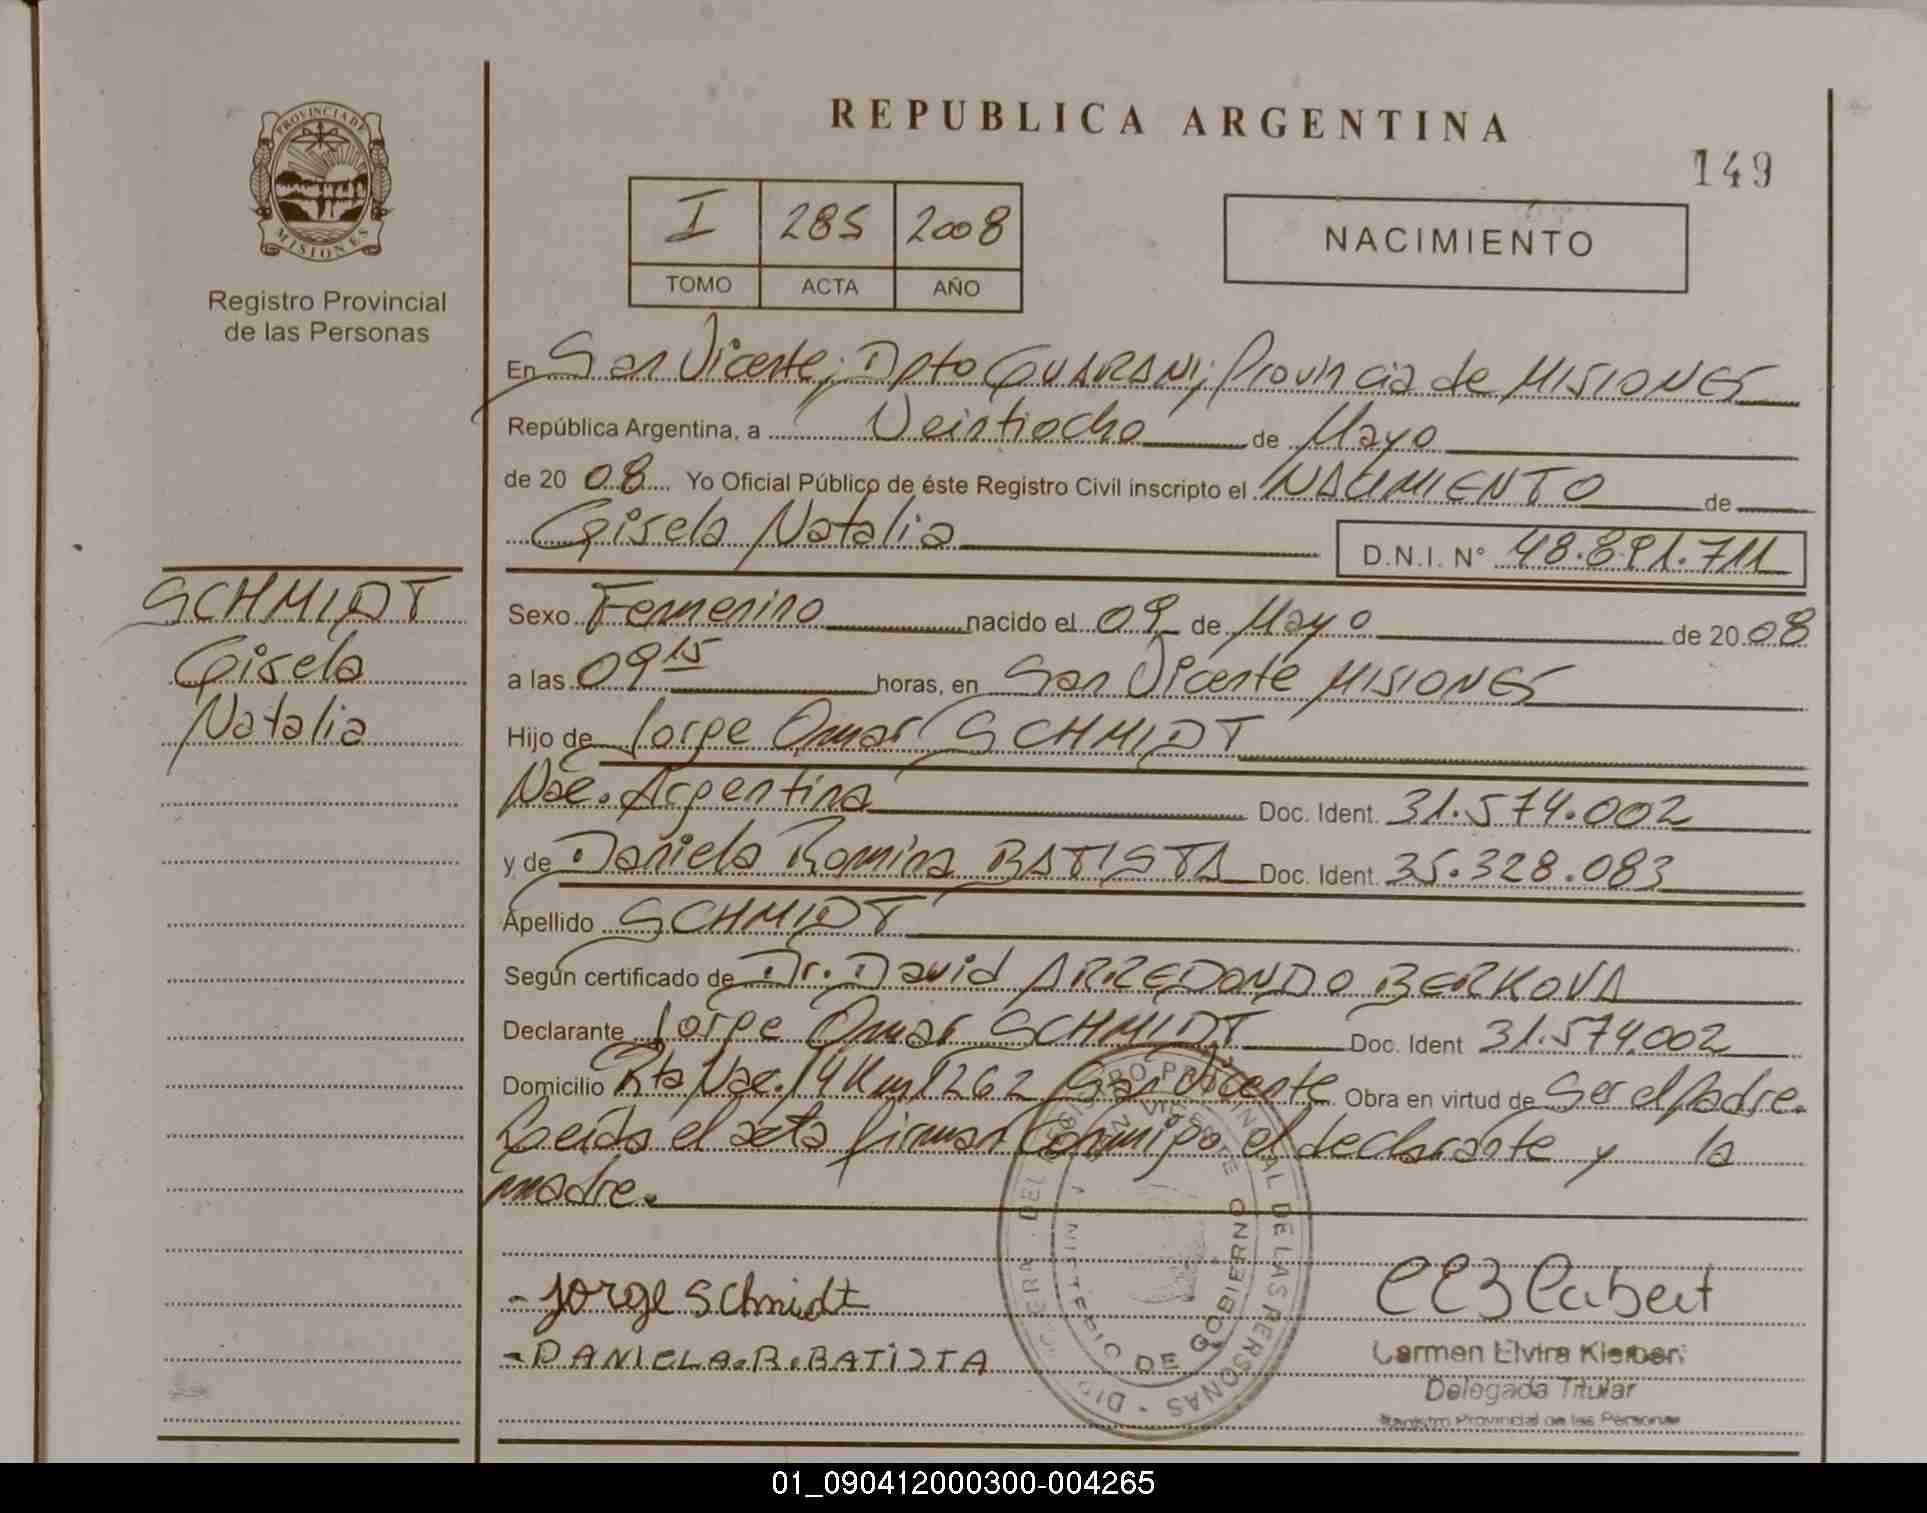 REPUBLICA ARGENTINA
149
PROVINCIA DE
MISIONES
Registro Provincial
de las Personas
I 285 2008
TOMO ACTA AÑO
NACIMIENTO
En San Vicente; Dpto GUARANI; Provincia de MISIONES
República Argentina, a Veintiocho de Mayo
de 20 08 Yo Oficial Público de éste Registro Civil inscripto el NACIMIENTO de
Gisela Natalia
D.N.I. N° 48.891.711
SCHMIDT
Gisela
Natalia
Sexo Femenino nacido el 09 de Mayo de 20 08
a las 09 15 horas, en San Vicente MISIONES
Hijo de Jorge Omar SCHMIDT
Nac. Argentina Doc. Ident. 31.574.002
y de Daniela Romina BATISTA Doc. Ident. 35.328.083
Apellido SCHMIDT
Según certificado de Dr. David ARREDONDO BERKOVA
Declarante Jorge Omar SCHMIDT Doc. Ident 31.574.002
Domicilio Rta Nac. 14 Km 1262 San Vicente Obra en virtud de Ser el padre.
Leída el acta firman conmigo el declarante y la
madre.
- Jorge Schmidt
- DANIELA.R.BATISTA
DEL REGISTRO PROVINCIAL DE LAS PERSONAS
SAN VICENTE
MINISTERIO DE GOBIERNO
Carmen Elvira
Delegada Titular
Registro Provincial de las Personas
01_090412000300-004265